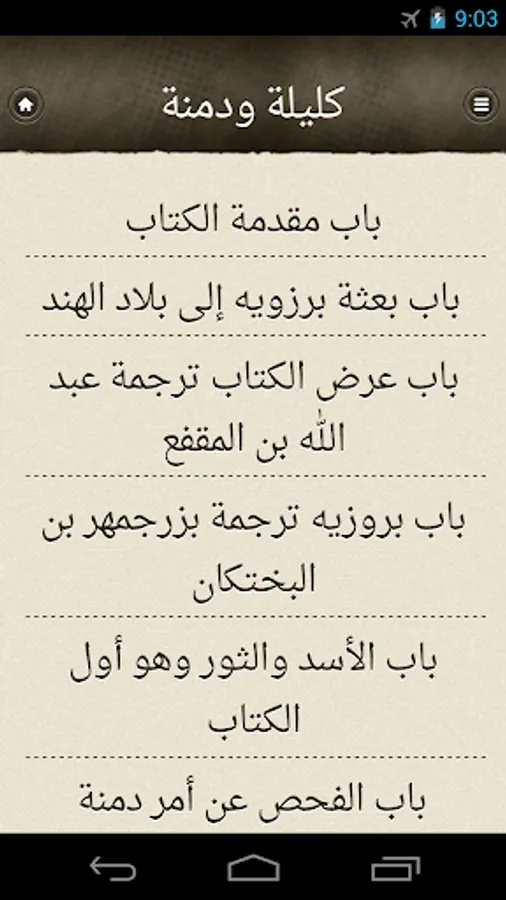 9:03
كليلة ودمنة
باب مقدمة الكتاب
باب بعثة برزويه إلى بلاد الهند
باب عرض الكتاب ترجمة عبد
الله بن المقفع
باب بروزيه ترجمة بزرجمهر بن
البختكان
باب الأسد والثور وهو أول
الكتاب
باب الفحص عن أمر دمنة